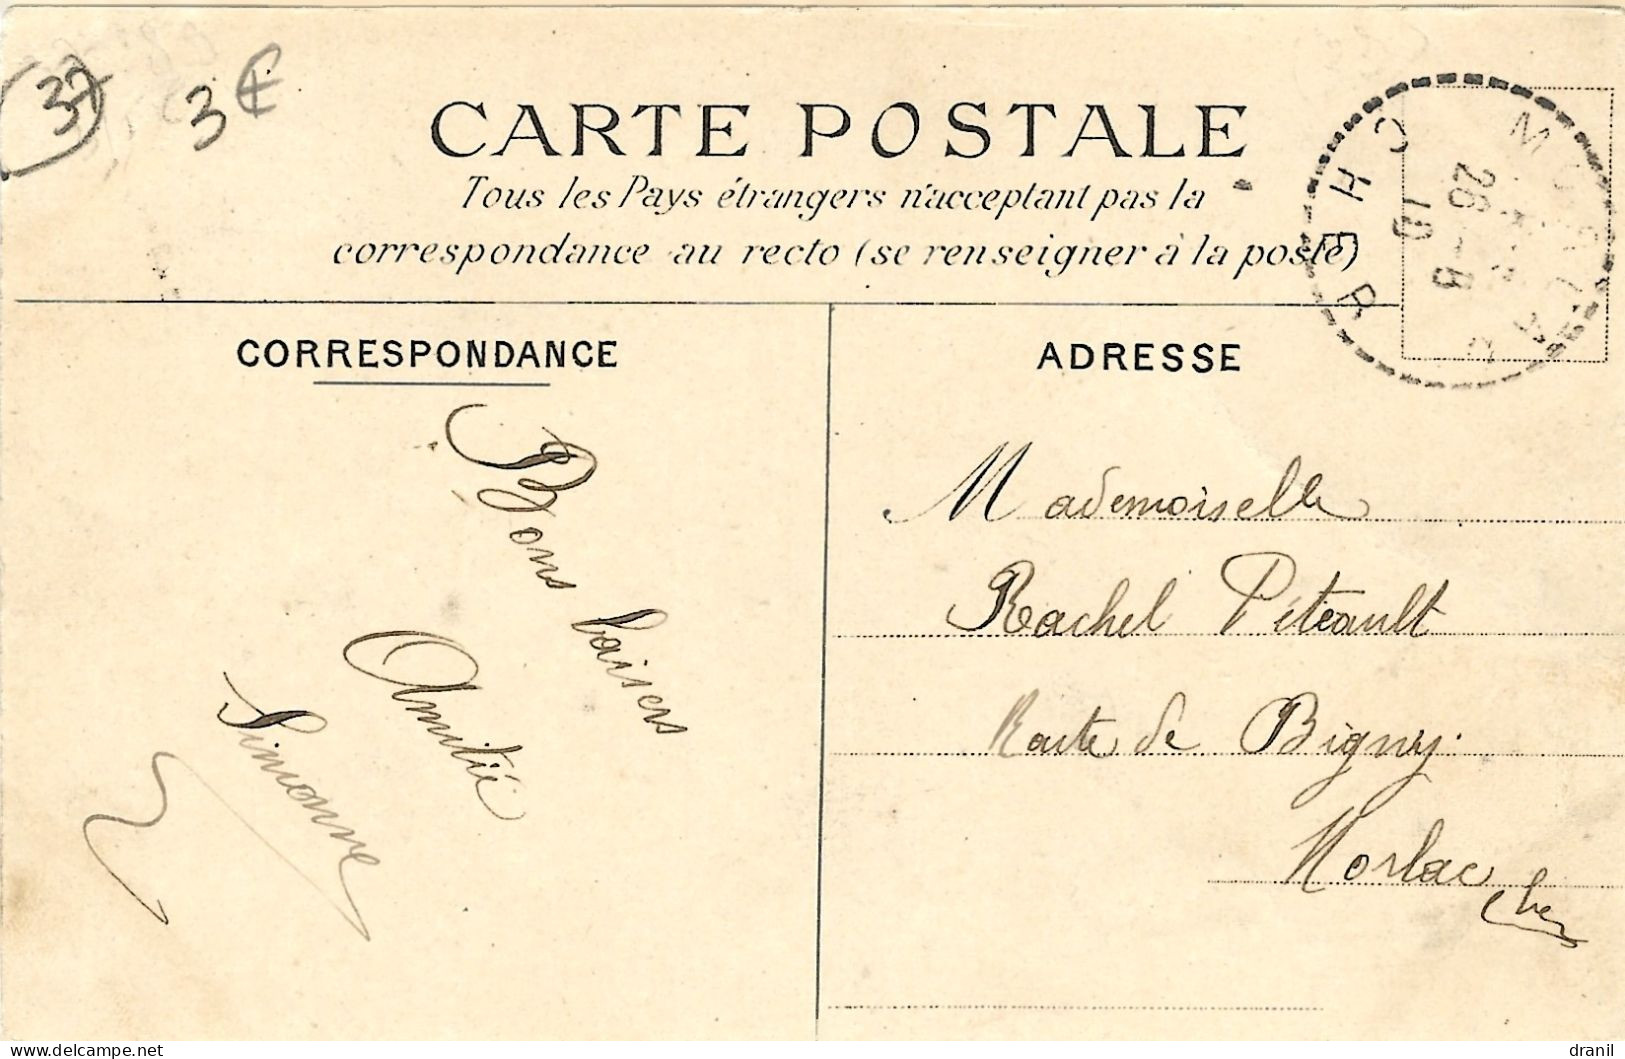 37
3€
CARTE POSTALE
Tous les Pays étrangers n'acceptant pas la
correspondance au recto (se renseigner à la poste)
CHER
26 - 6
19
CORRESPONDANCE
ADRESSE
Bons baisers
Amitié
Simonne
Mademoiselle
Rachel Péteault
Route de Bigny.
Morlac
Cher
delcampe.net
dranil